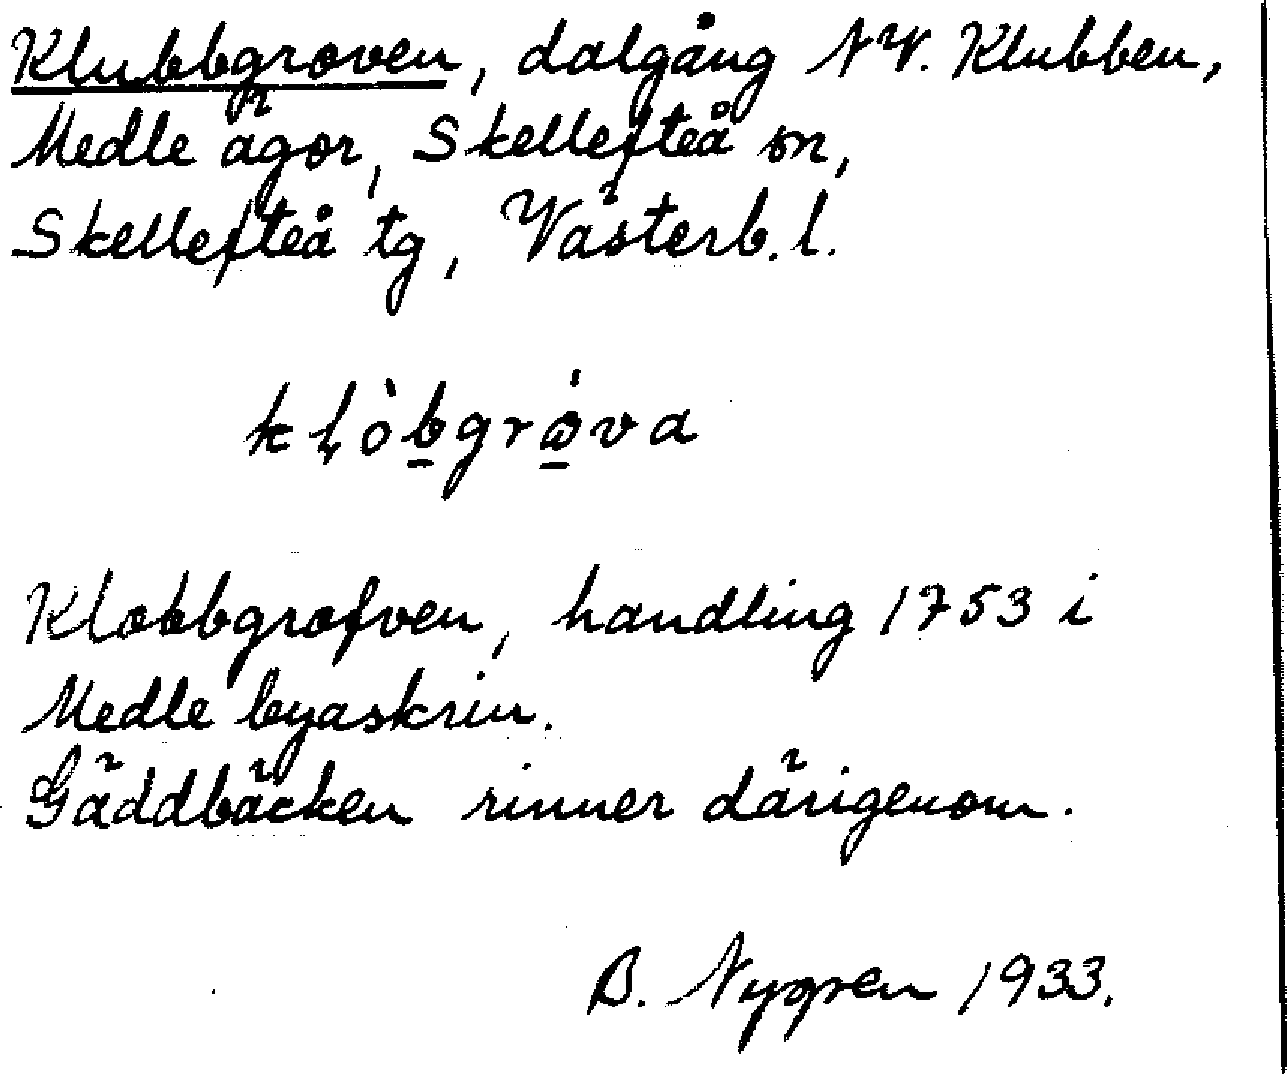 Klubbgraven, dalgång NV. Klubben,
Medle ägor, Skellefteå sn,
Skellefteå tg, Västerb. l.
kḷòb̲grǻ̲va
Klobbgrafven, handling 1753 i
Medle byaskrin.
Gäddbäcken rinner därigenom.
B. Nygren 1933.